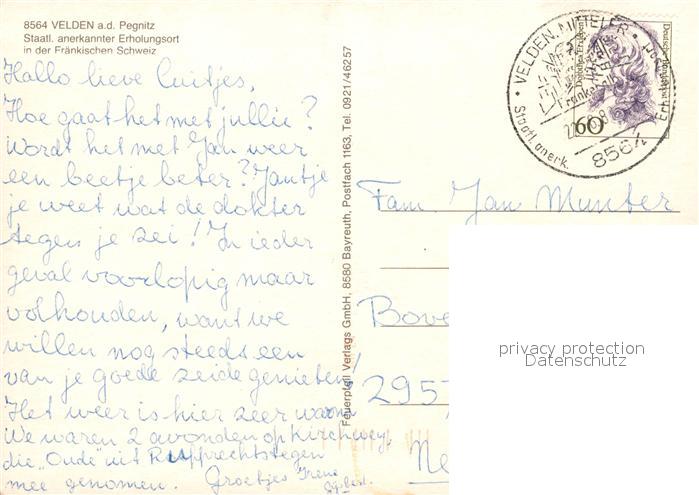 8564 VELDEN a.d. Pegnitz
Staatl. anerkannter Erholungsort
in der Fränkischen Schweiz
Hallo lieve luitjes,
Hoe gaat het met jullie?
Wordt het met Jan weer
een beetje beter? Jantje
je weet wat de dokter
tegen je zei! In ieder
geval voorlopig maar
volhouden, want we
willen nog steeds een
van je goede zeide genieten!
Het weer is hier zeer warm
We waren 2 avonden op Kirchwey.
die "Oude" uit Rupprechtstegen
mee genomen. Groetjes Irene
Feuerpfeil Verlags GmbH, 8580 Bayreuth, Postfach 1163, Tel. 0921/46257
VELDEN, MITTELFR.
Staatl. anerk.
8564
60
Deutsche Bundespost
Fam. Jan Munter
Bove
295
Ne
privacy protection
Datenschutz